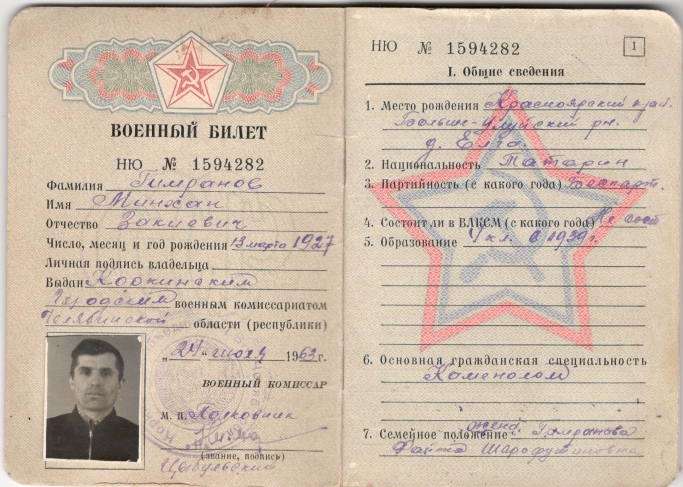 ВОЕННЫЙ БИЛЕТ
НЮ № 1594282
Фамилия Гимранов
Имя Минхан
Отчество Закиевич
Число, месяц и год рождения 13 марта 1927
Личная подпись владельца
Выдан Коркинским
Городским военным комиссариатом
Челябинской области (республики)
„24“ 1963 г.
ВОЕННЫЙ КОМИССАР
М. П. Полковник
(звание, подпись)
Цыбулевский
НЮ № 1594282
1
I. Общие сведения
1. Место рождения Красноярский край.
Больше-Улуйский рн.
д. Елга.
2. Национальность Татарин
3. Партийность (с какого года) Беспарт.
4. Состоит ли в ВЛКСМ (с какого года) Не сост
5. Образование 4 кл. в 1939 г.
6. Основная гражданская специальность
Каменолом
7. Семейное положение жена: Гимранова